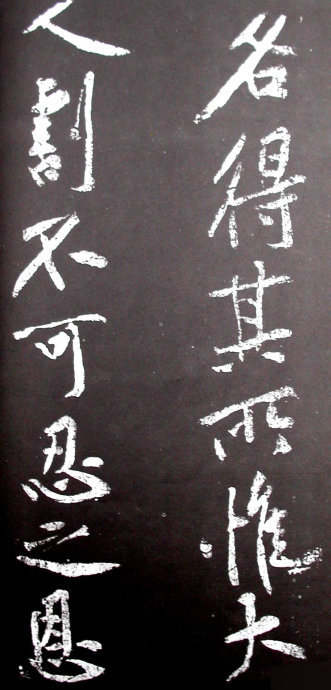 各得其所惟大
人割不可忍之恩